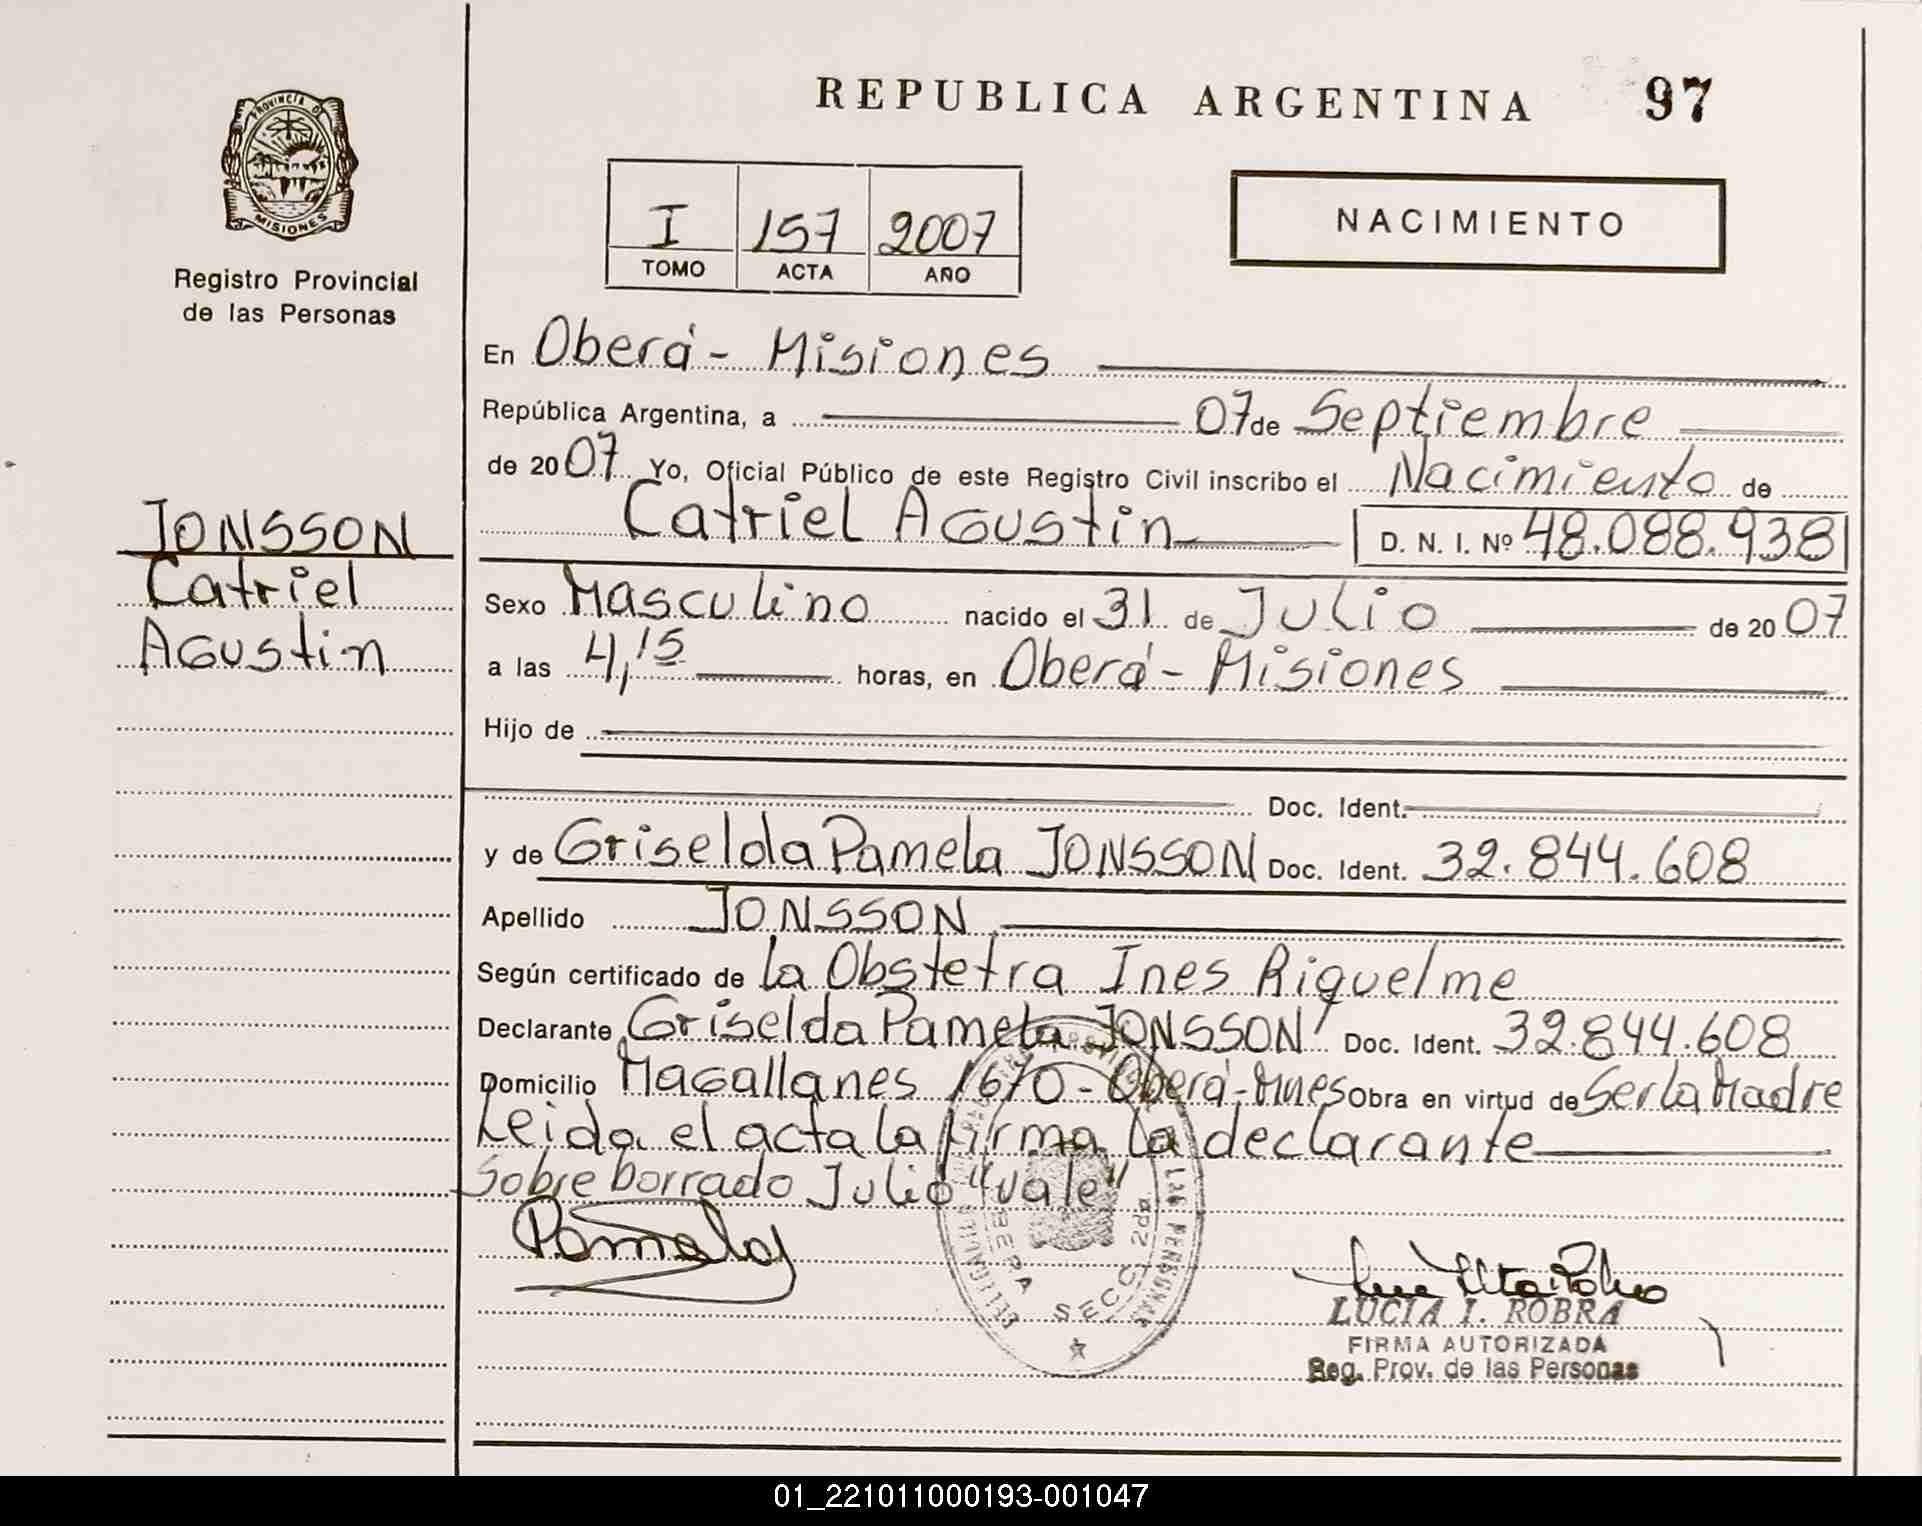 REPUBLICA ARGENTINA 97
PROVINCIA DE
MISIONES
Registro Provincial
de las Personas
I 157 2007
TOMO ACTA AÑO
NACIMIENTO
En Oberá - Misiones
República Argentina, a 07 de Septiembre
de 2007 Yo, Oficial Público de este Registro Civil inscribo el Nacimiento de
Catriel Agustin D. N. I. Nº 48.088.938
JONSSON
Catriel
Agustin
Sexo Masculino nacido el 31 de Julio de 2007
a las 4,15 horas, en Oberá - Misiones
Hijo de
Doc. Ident.
y de Griselda Pamela JONSSON Doc. Ident. 32.844.608
Apellido JONSSON
Según certificado de la Obstetra Ines Riquelme
Declarante Griselda Pamela JONSSON Doc. Ident. 32.844.608
Domicilio Magallanes 1670 - Oberá - Mnes Obra en virtud de Ser la Madre
Leida el acta la firma la declarante
Sobre borrado Julio "vale"
Pamela
LUCIA I. ROBRA
FIRMA AUTORIZADA
Reg. Prov. de las Personas
01_221011000193-001047